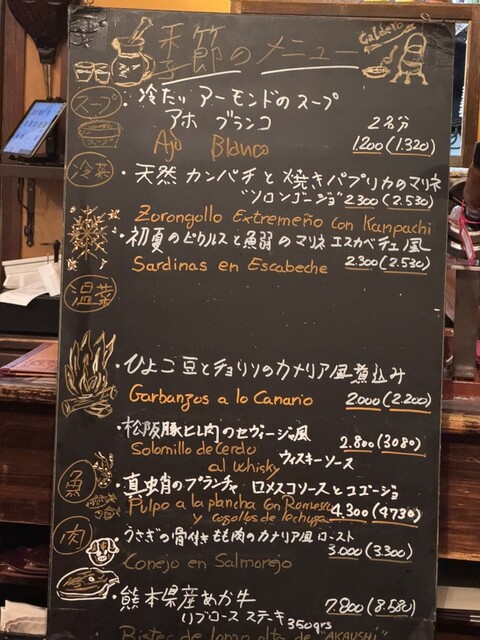 季節のメニュー
Caldero
スープ
冷たいアーモンドのスープ
アホ ブランコ 2名分
Ajo Blanco 1200(1.320)
冷菜
・天然カンパチと焼きパプリカのマリネ
"ソロンゴージョ" 2.300(2.530)
Zorongollo Extremeño con Kanpachi
・初夏のピクルスと魚弱のマリネ エスカベチェ風
Sardinas en Escabeche 2.300(2.530)
温菜
・ひよこ豆とチョリソのカナリア風煮込み
Garbanzos a lo Canario 2000(2.200)
・松阪豚ヒレ肉のセヴィージャ風
Solomillo de Cerdo 2.800(3080)
al Whisky ウィスキーソース
魚
・真蛸のプランチャ ロメスコソースとコゴージョ
Pulpo a la plancha con Romesco
y cogollos de lechuga 4.300(4730)
肉
・うさぎの骨付きもも肉のカナリア風ロースト
3.000(3.300)
Conejo en Salmorejo
・熊本県産あか牛 7.800(8.580)
リブロース ステキ 350grs
Bistec de lomo alto de "AKAUSHI"